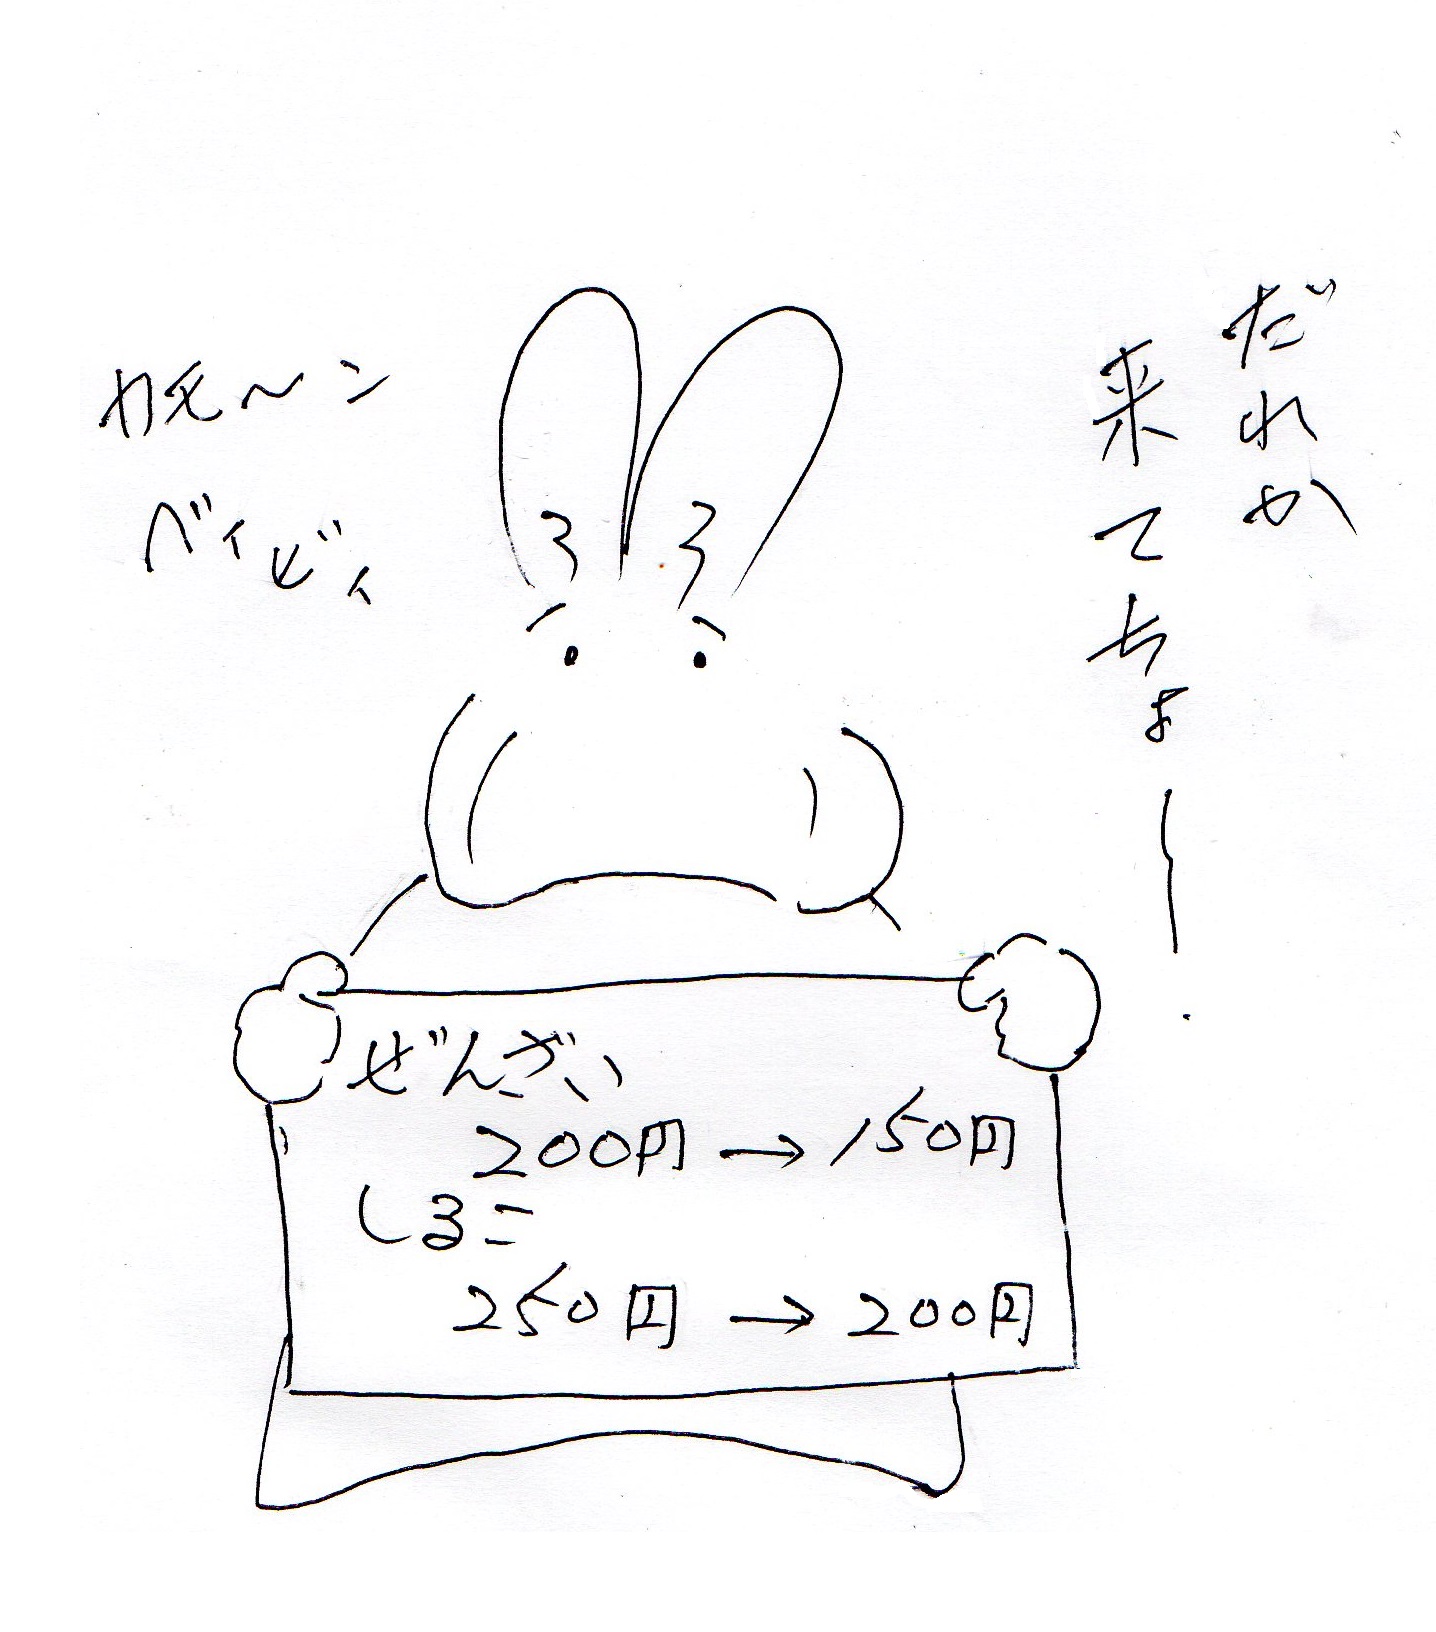 だれか
来てちょー.
カモ〜ン
ベイビィ
ぜんざい
200円→150円
しるこ
250円→200円